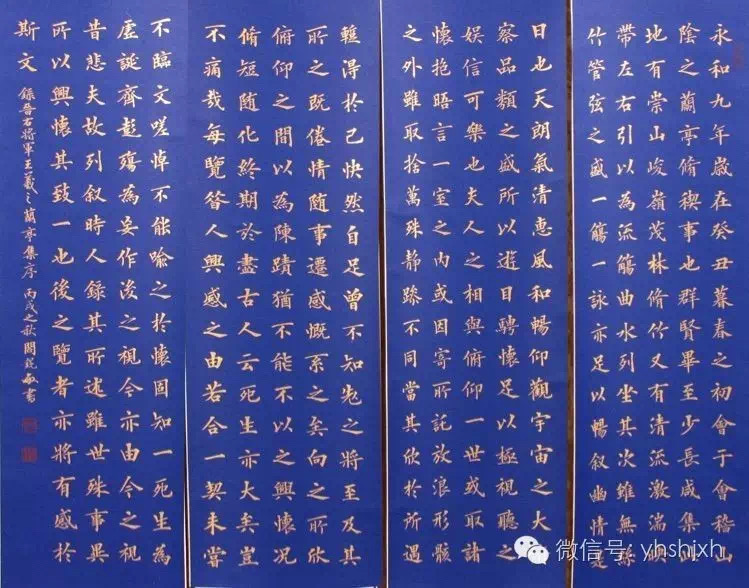 永和九年歲在癸丑暮春之初會于會稽山
陰之蘭亭脩禊事也群賢畢至少長咸集
地有崇山峻嶺茂林脩竹又有清流激湍
帶左右引以為流觴曲水列坐其次雖無
竹管弦之盛一觴一詠亦足以暢叙幽情是
日也天朗氣清惠風和暢仰觀宇宙之大
察品類之盛所以遊目騁懷足以極視聽之
娛信可樂也夫人之相與俯仰一世或取諸
懷抱晤言一室之內或因寄所託放浪形骸
之外雖取捨萬殊靜躁不同當其欣於所遇
蹔得於己快然自足曾不知老之將至及其
所之既倦情隨事遷感慨系之矣向之所欣
俯仰之間以為陳蹟猶不能不以之興懷況
脩短隨化終期於盡古人云死生亦大矣豈
不痛哉每覽昔人興感之由若合一契未嘗
不臨文嗟悼不能喻之於懷固知一死生為
虛誕齊彭殤為妄作後之視今亦由今之視
昔悲夫故列叙時人錄其所述雖世殊事異
所以興懷其致一也後之覽者亦將有感於
斯文 錄晉右將軍王羲之蘭亭集序 丙戌之秋 閻銳敏書
微信号: yhshjxh